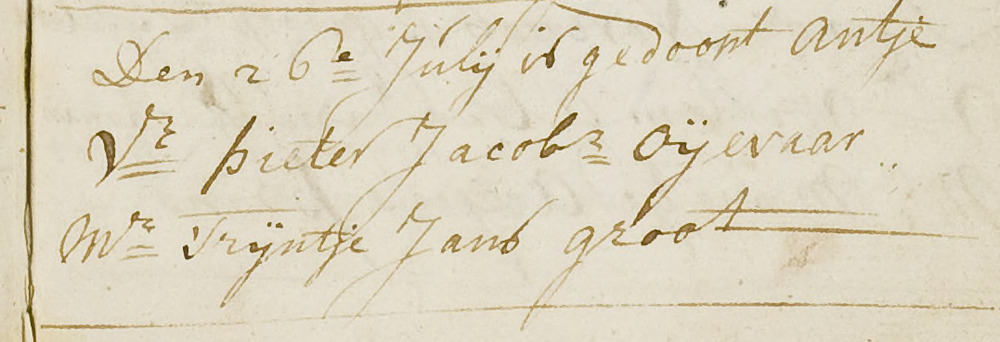 Den 26e Julij is gedoopt Antje
Vr Pieter Jacobz Oijevaar
Mr Trijntje Jans groot